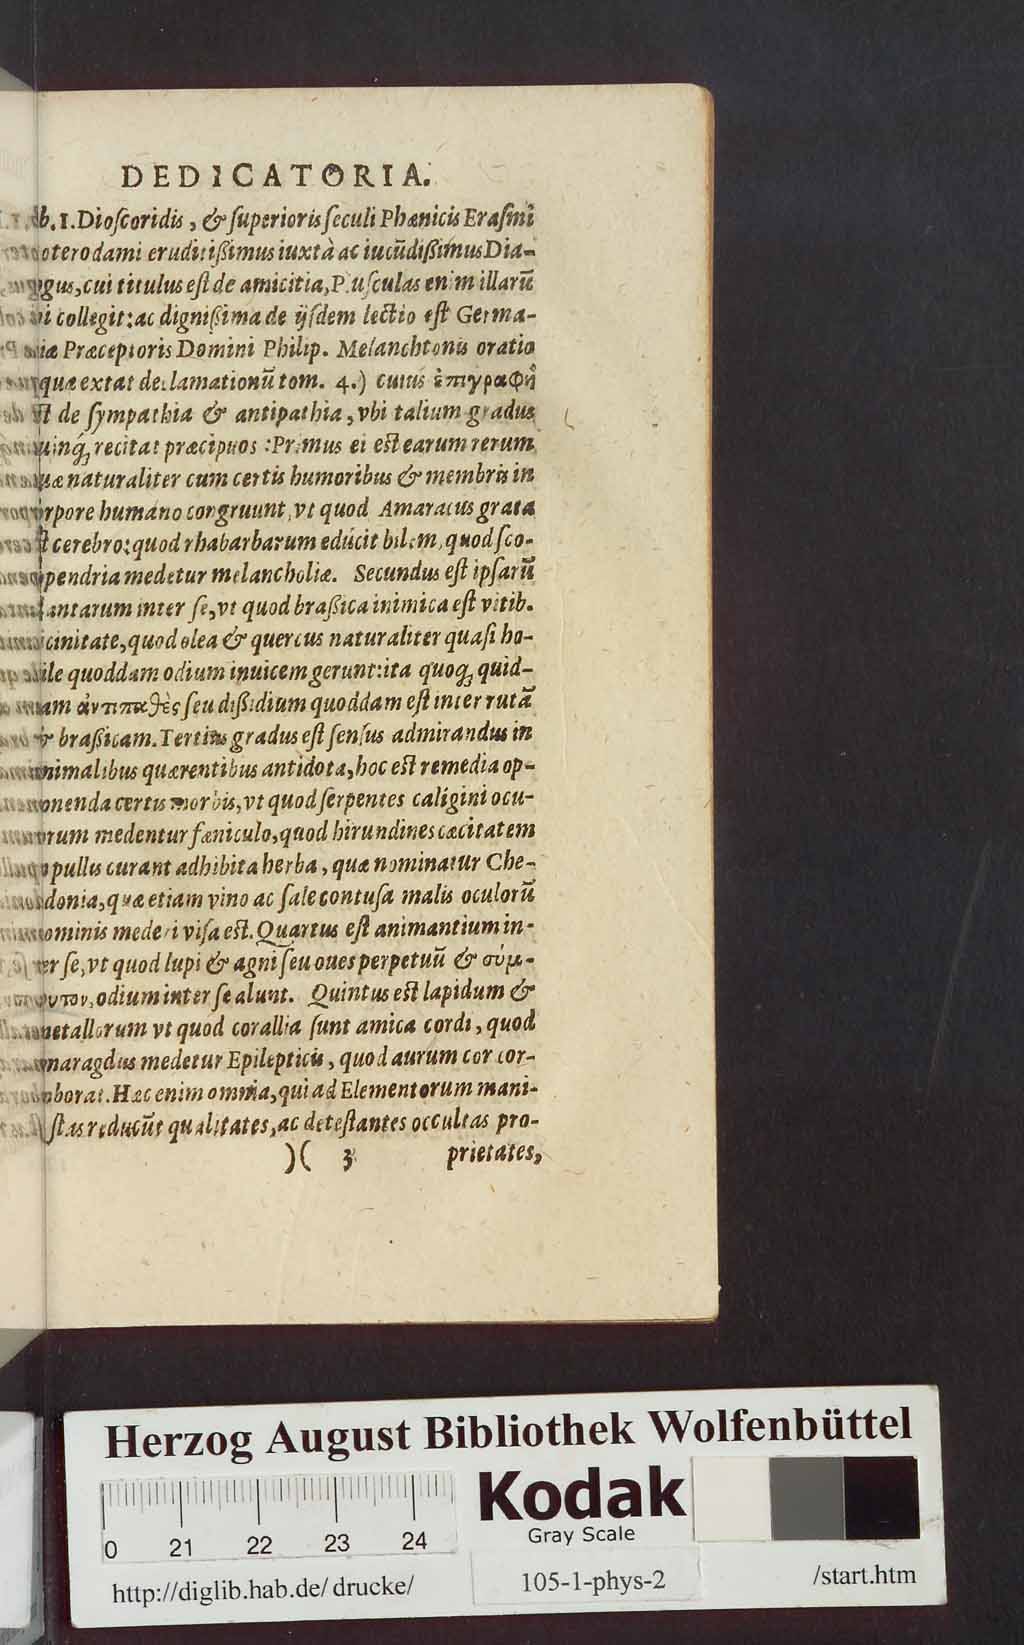 DEDICATORIA.
b. 1. Dioſcoridis, & ſuperioris ſeculi Phœnicis Eraſmi
oterodami eruditißimus iuxtà ac iucũdißimus Dia-
gus, cui titulus eſt de amicitia, Pluſculas enim illarũ
vi collegit: ac dignißima de ijſdem lectio eſt Germa-
iæ Præceptoris Domini Philip. Melanchtonis oratio
quæ extat declamationũ tom. 4.) cuius ἐπιγραφὴ
ſt de ſympathia & antipathia, vbi talium gradus
uinq́ꝫ recitat præcipuos: Primus ei eſt earum rerum
uæ naturaliter cum certis humoribus & membris in
rpore humano congruunt, vt quod Amaracus grata
ſt cerebro: quod rhabarbarum edúcit bilem, quod ſco-
pendria medetur melancholiæ. Secundus eſt ipſarũ
antarum inter ſe, vt quod braßica inimica eſt vitib.
cinitate, quod olea & quercus naturaliter quaſi ho-
ile quoddam odium inuicem gerunt: ita quoqꝫ quid-
am ἀντιπαθὲς ſeu dißidium quoddam eſt inter rutã
& braßicam. Tertius gradus eſt ſenſus admirandus in
nimalibus quærentibus antidota, hoc eſt remedia op-
onenda certis morbis, vt quod ſerpentes caligini ocu-
orum medentur fœniculo, quod hirundines cæcitatem
pullis curant adhibita herba, quæ nominatur Che-
donia, quæ etiam vino ac ſale contuſa malis oculorũ
ominis mederi viſa eſt. Quartus eſt animantium in-
er ſe, vt quod lupi & agni ſeu oues perpetuũ & σύμ-
φυτον, odium inter ſe alunt. Quintus eſt lapidum &
etallorum vt quod corallia ſunt amica cordi, quod
maragdus medetur Epilepticis, quod aurum cor cor-
borat. Hæc enim omnia, qui ad Elementorum mani-
ſtas reducũt qualitates, ac deteſtantes occultas pro-
)( 3 prietates,
Herzog August Bibliothek Wolfenbüttel
0 21 22 23 24
Kodak
Gray Scale
http://diglib.hab.de/drucke/ 105-1-phys-2 /start.htm